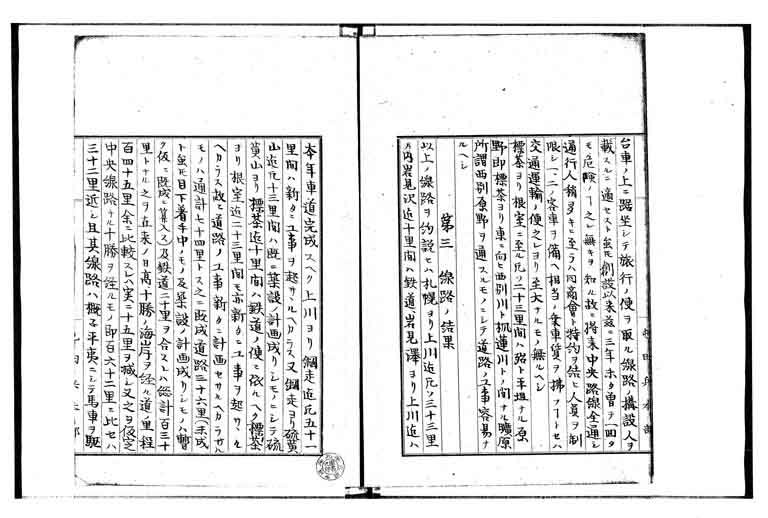 台車ノ上ニ踞坐シテ旅行ノ便ヲ取ル線路構設人ヲ
載スルニ適セスト雖モ創設以来茲ニ三年未タ曽テ一回タ
モ危険ノ丁之レ無キヲ知ル故ニ将来中央路線全通シ
通行人稍多キニ至ラハ同商會ト特約ヲ結ヒ人員ヲ制
限シ一二ノ客車ヲ備ヘ相当ノ乗車賃ヲ拂フ丁トセハ
交通運輸ノ便之レヨリ至大ナルモノ無ルヘシ
標茶ヨリ根室ニ至ル凡ソ二十三里間ハ略ト平坦ナル原
野即標茶ヨリ東ニ向ヒ西別川ト風蓮川トノ間ナル曠原
所謂西別原野ヲ通スルモノニシテ道路ノ工事容易ナ
ルヘシ
第三 線路ノ結果
以上ノ線路ヲ約説セハ札幌ヨリ上川迄凡ソ三十三里
ノ内岩見沢迄十里間ハ鉄道岩見澤ヨリ上川迄ハ
本年車道完成スヘク上川ヨリ網走迄凡五十一
里間ハ新タニ工事ヲ起サヽルヘカラス又網走ヨリ硫黄
山迄凡十三里間ハ既ニ築設ノ計画成リシモノニシテ硫
黄山ヨリ標茶迄十里間ハ鉄道ノ便ニ依ルヘク標茶
ヨリ根室迄二十三里間モ亦新タニ工事ヲ起サヽル
ヘカラス故ニ道路ノ工事新タニ計画セサルヘカラサル
モノハ通計七十四里トス之ニ既成道路三十六里(未成
ト雖モ目下着手中ノモノ及築設ノ計画成リシモノハ暫
ク仮ニ既成ニ算入ス)及鉄道二十里ヲ合スレハ総計百三十
里トナル之ヲ在来ノ日高十勝ノ海岸ヲ経ル道ノ里程
百四十五里余ニ比較スレハ実ニ十五里ヲ減シ又之ヲ仮定
中央線路ナル十勝ヲ経ルモノ即百六十二里ニ比セハ
三十二里近シ且其線路ハ概子平夷ニシテ馬車ヲ駆